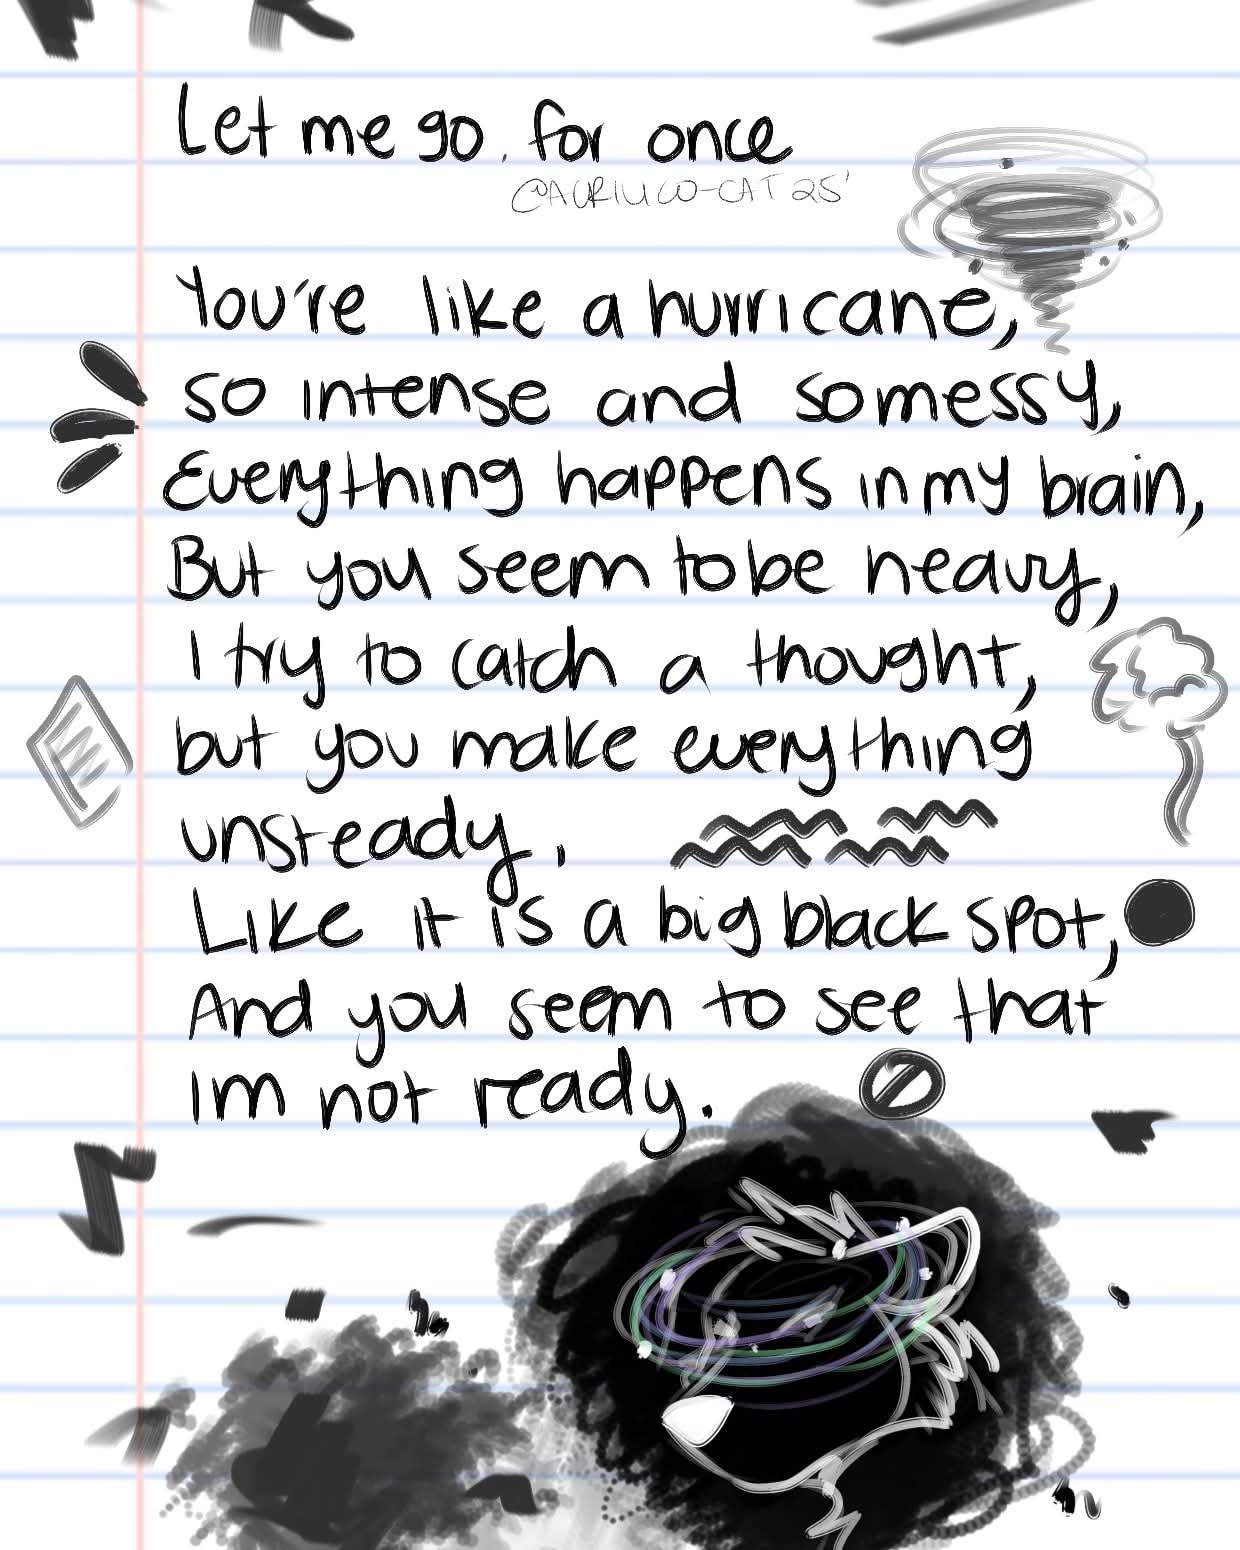 Let me go. for once
@AURIUCO-CAT 25'
You're like a hurricane,
so intense and so messy,
Everything happens in my brain,
But you seem to be heavy,
I try to catch a thought,
but you make everything
unsteady.
Like it is a big black spot,
And you seem to see that
im not ready.